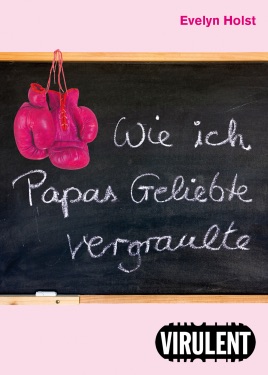 Evelyn Holst
Wie ich
Papas Geliebte
vergraulte
VIRULENT